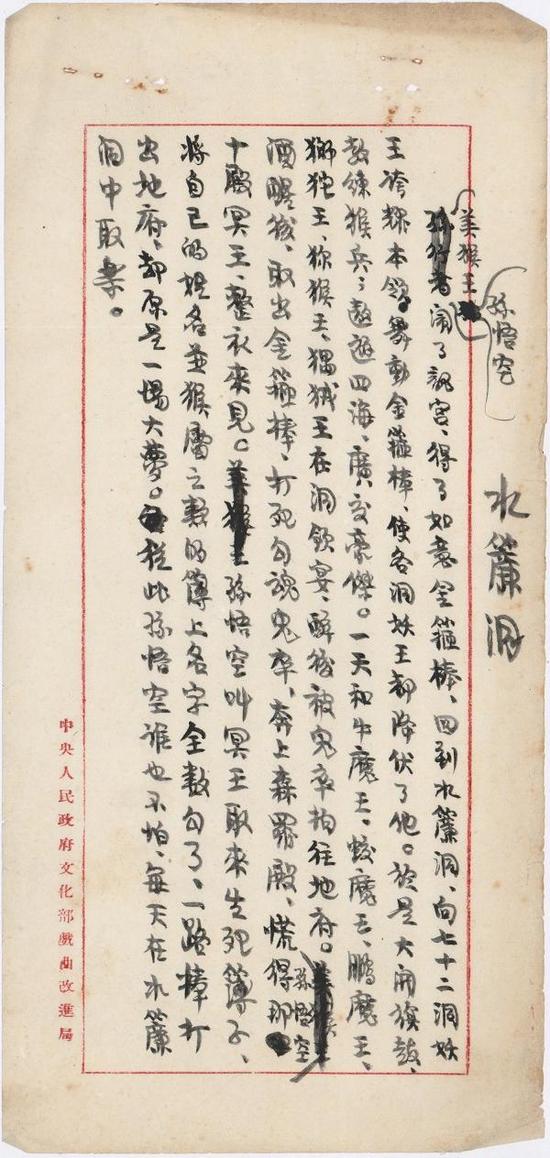 水簾洞
孫悟空
美猴王
鬧了龍宮、得了如意金箍棒、回到水簾洞、向七十二洞妖
王誇耀本領。舞動金箍棒、使各洞妖王都降伏了他。於是大開旗鼓、
教練猴兵；遨遊四海、廣交豪傑。一天和牛魔王、蛟魔王、鵬魔王、
獅狔王、獼猴王、𤟹狨王在洞飲宴、醉後被鬼卒拘往地府。孫悟空
酒醒後、取出金箍棒、打死勾魂鬼卒、奔上森羅殿、慌得那
十殿冥王、整衣來見。孫悟空叫冥王取來生死簿子、
將自己的姓名並猴屬之數的簿上名字全數勾了、一路棒打
出地府、却原是一場大夢。從此孫悟空誰也不怕、每天在水簾
洞中取樂。
中央人民政府文化部戲曲改進局